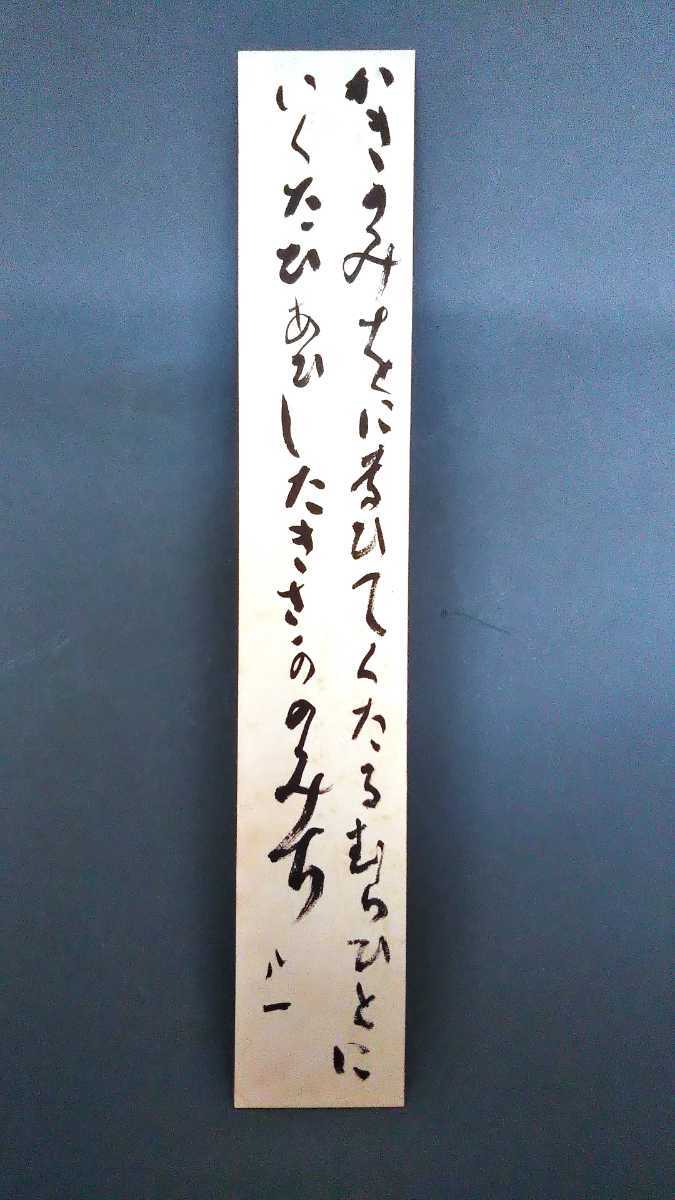 かきのみをに奈ひてくたるむらひとに
いくたひあひしたきさかのみち
八一